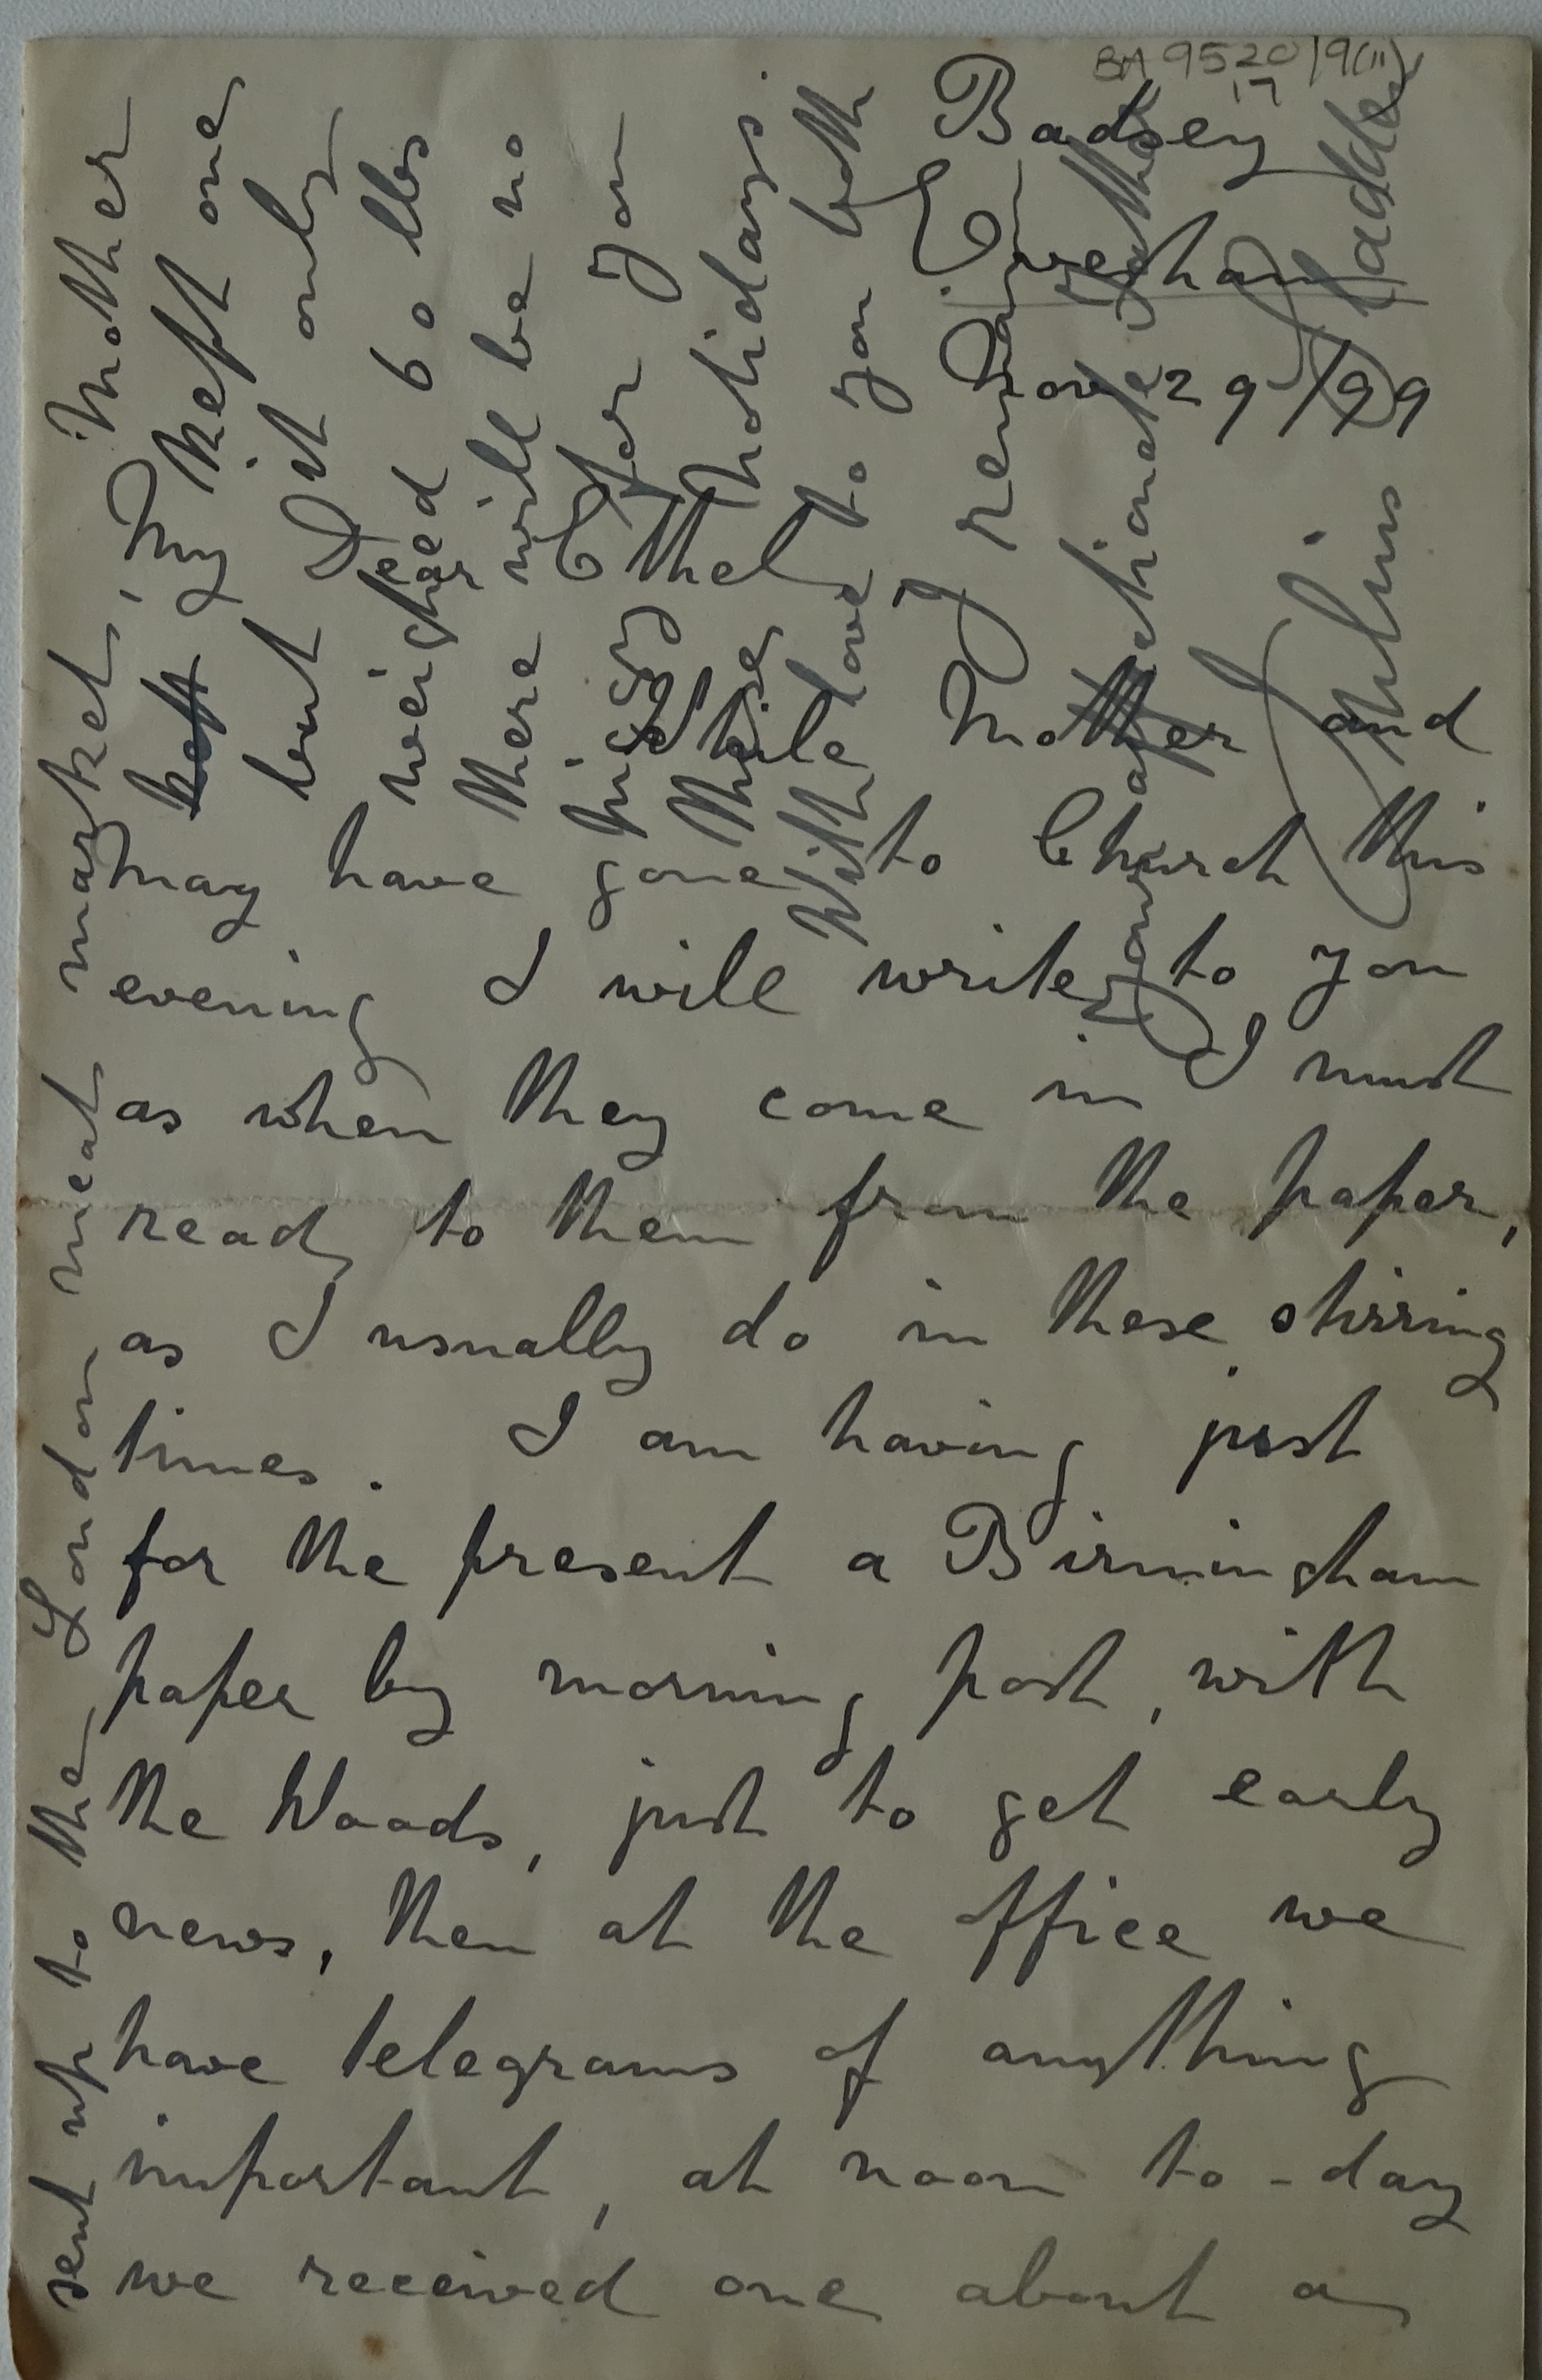 BA 9520/9(ii)
17
Badsey
Evesham
Nov 29/99
While Mother and
May have gone to Church this
evening I will write to you
as when they come in I must
read to them from the paper,
as I usually do in these stirring
times. I am having just
for the present a Birmingham
paper by morning post, with
the Woods, just to get early
news, then at the office we
have telegrams of anything
important, at noon to-day
we received one about a
sent up to the London meat market, Mother
kept one
but it only
weighed 60 lbs
there will be no
for you
Ethel
these holidays.
With love to you both
I remain
your affectionate father
Julius Sladden